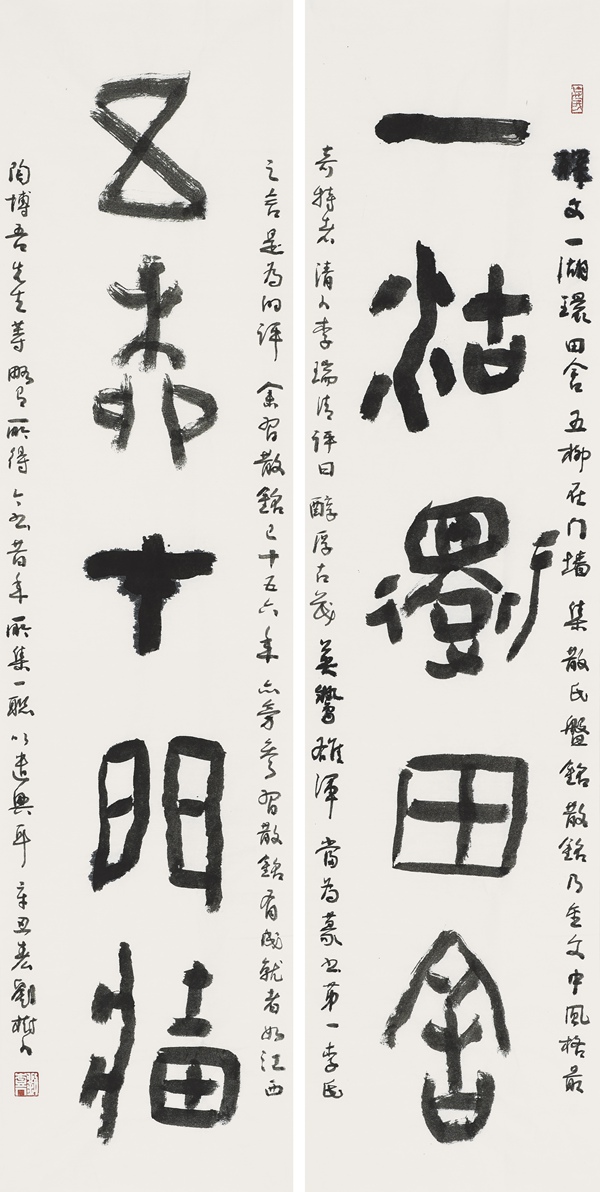 釋文一湖環田舍五柳在门墙集散氏盤銘散銘乃金文中風格最
一湖環田舍
奇特者清人李瑞清评曰醇厚古茂英鷙雄渾當為篆书第一李氏
之言是為的评余習散銘已十五六年亦旁參習散銘有成就者如江西
五柳在門墻
陶博吾先生等略有所得今书昔年所集一聯以遣興耳辛丑春劉樹人